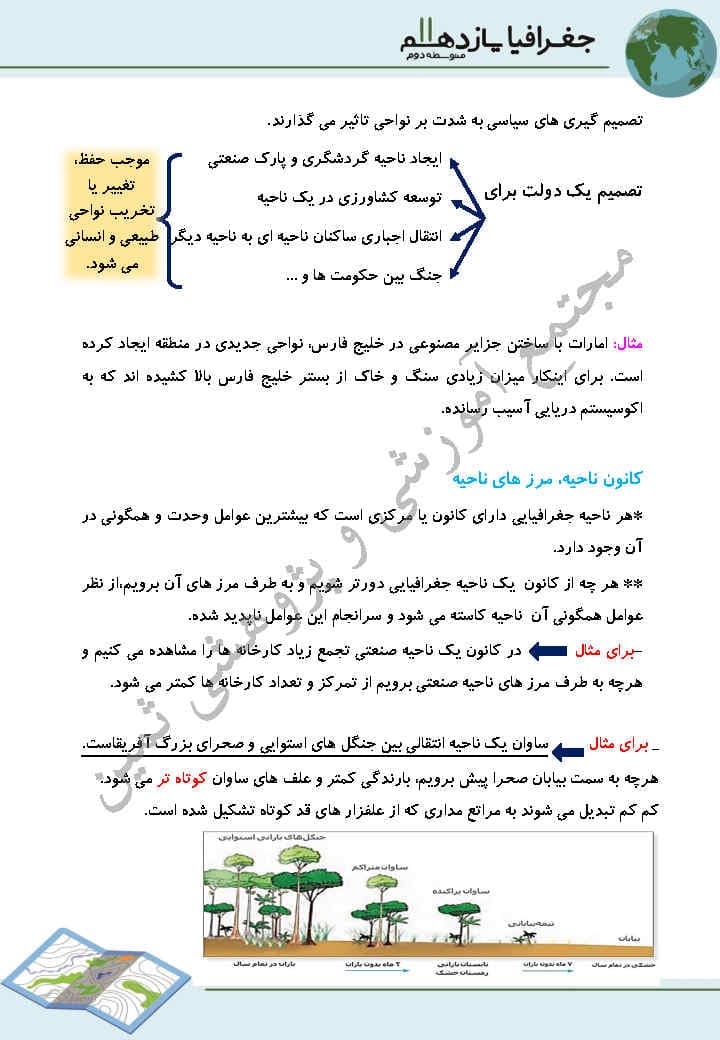 جغرافیا یازدهم
متوسطه دوم
تصمیم گیری های سیاسی به شدت بر نواحی تاثیر می گذارند.
تصمیم یک دولت برای
ایجاد ناحیه گردشگری و پارک صنعتی
توسعه کشاورزی در یک ناحیه
انتقال اجباری ساکنان ناحیه ای به ناحیه دیگر
جنگ بین حکومت ها و ...
موجب حفظ،
تغییر یا
تخریب نواحی
طبیعی و انسانی
می شود.
مثال: امارات با ساختن جزایر مصنوعی در خلیج فارس، نواحی جدیدی در منطقه ایجاد کرده
است. برای اینکار میزان زیادی سنگ و خاک از بستر خلیج فارس بالا کشیده اند که به
اکوسیستم دریایی آسیب رسانده.
کانون ناحیه، مرز های ناحیه
*هر ناحیه جغرافیایی دارای کانون یا مرکزی است که بیشترین عوامل وحدت و همگونی در
آن وجود دارد.
** هر چه از کانون یک ناحیه جغرافیایی دورتر شویم و به طرف مرز های آن برویم،از نظر
عوامل همگونی آن ناحیه کاسته می شود و سرانجام این عوامل ناپدید شده.
–برای مثال در کانون یک ناحیه صنعتی تجمع زیاد کارخانه ها را مشاهده می کنیم و
هرچه به طرف مرز های ناحیه صنعتی برویم از تمرکز و تعداد کارخانه ها کمتر می شود.
_ برای مثال ساوان یک ناحیه انتقالی بین جنگل های استوایی و صحرای بزرگ آفریقاست.
هرچه به سمت بیابان صحرا پیش برویم، بارندگی کمتر و علف های ساوان کوتاه تر می شود.
کم کم تبدیل می شوند به مراتع مداری که از علفزار های قد کوتاه تشکیل شده است.
جنگل‌های بارانی استوایی
ساوان متراکم
ساوان پراکنده
نیمه‌بیابانی
بیابان
باران در تمام سال
۲ ماه بدون باران
تابستان بارانی
زمستان خشک
۷ ماه بدون باران
خشکی در تمام سال
مجتمع آموزشی و پژوهشی ثمین